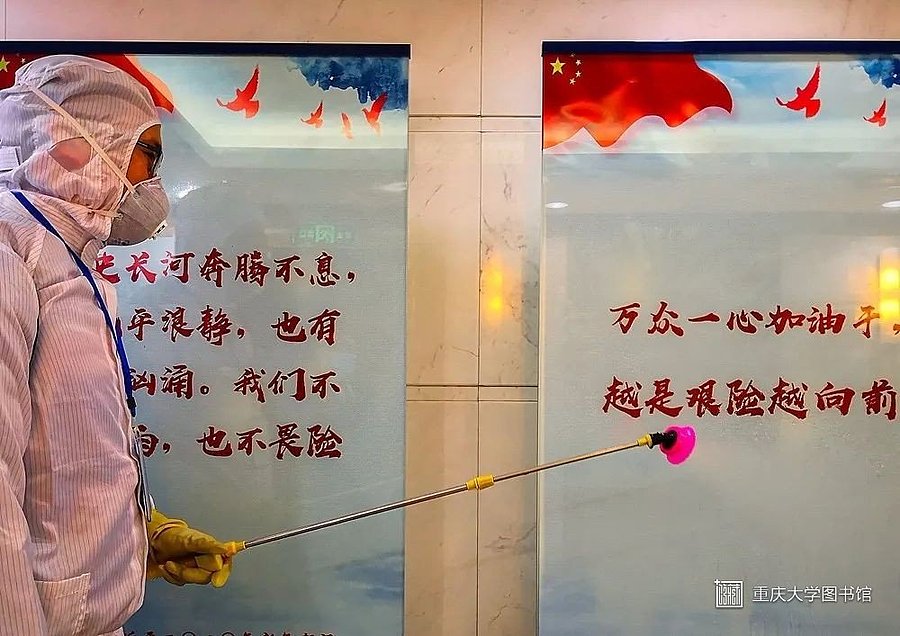 史长河奔腾不息，
平浪静，也有
汹涌。我们不
，也不畏险
万众一心加油干，
越是艰险越向前
重庆大学图书馆